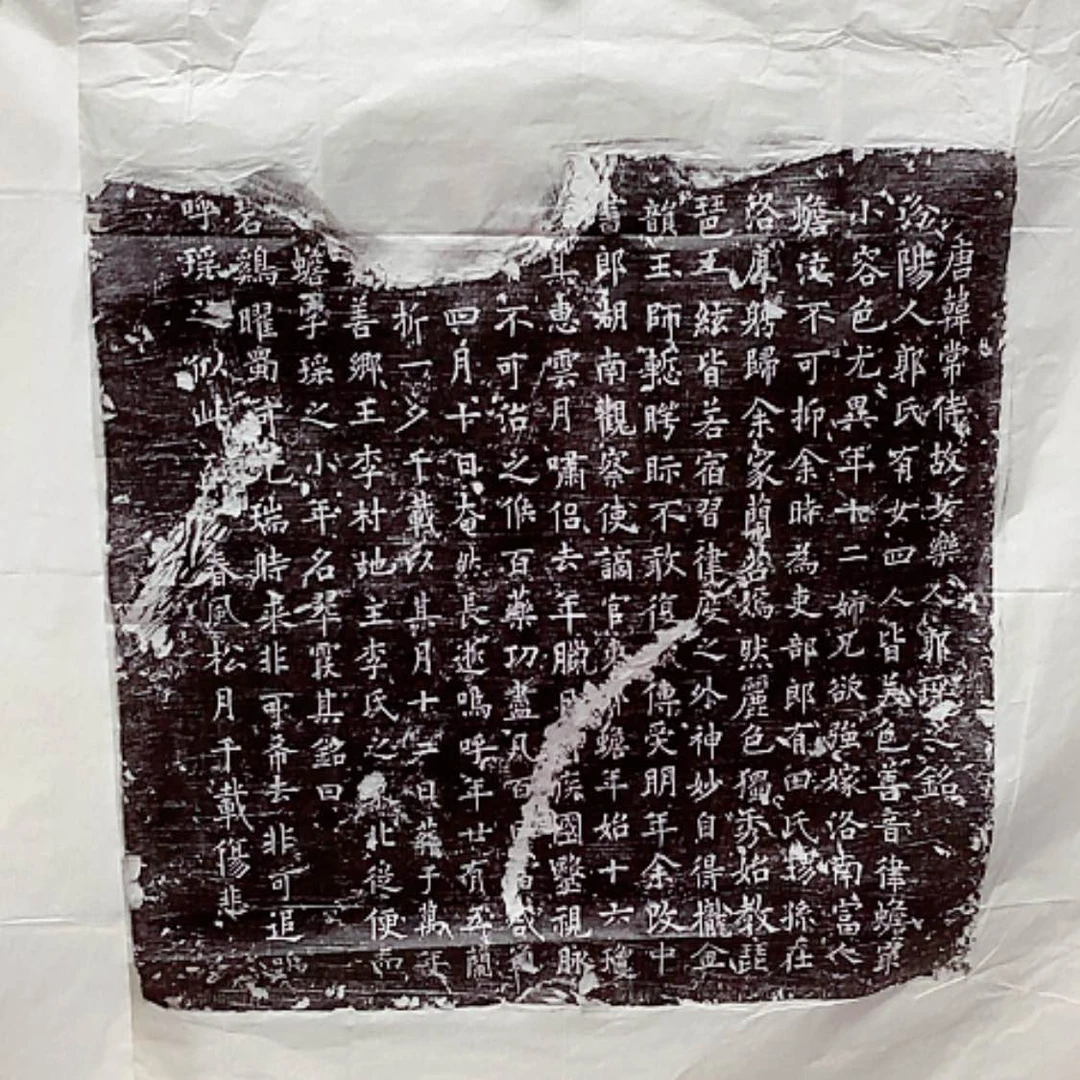 唐韓常侍故女樂人郭瑤之銘
汾陽人郭氏有女四人皆美色善音律蟾最
小容色尤異年十二姉兄欲強嫁洛南富人
蟾泣不可抑余時為吏部郎有田氏楊孫在
洛厚賂歸余家蘭若嫣然麗色獨秀始教琵
琶工絃皆若宿習律度之外神妙自得攏金
韻玉師輒愕眎不敢復傳受明年余改中
書郎湖南觀察使謫官 蟾年始十六瓊
其惠雲月嘯侶去年臘月 疾國毉視脉
不可治之候百藥功盡凡百
四月十日奄然長逝嗚呼年廿有五蘭
折一夕千載以其月十二日葬于萬年
善鄉王李村地主李氏之 北從便而
蟾字瑤之小年名翠霞其銘曰
若鷄曜蜀 瑞時来非可希去非可追嗚
呼瑤之 似此 春風松月千載傷悲